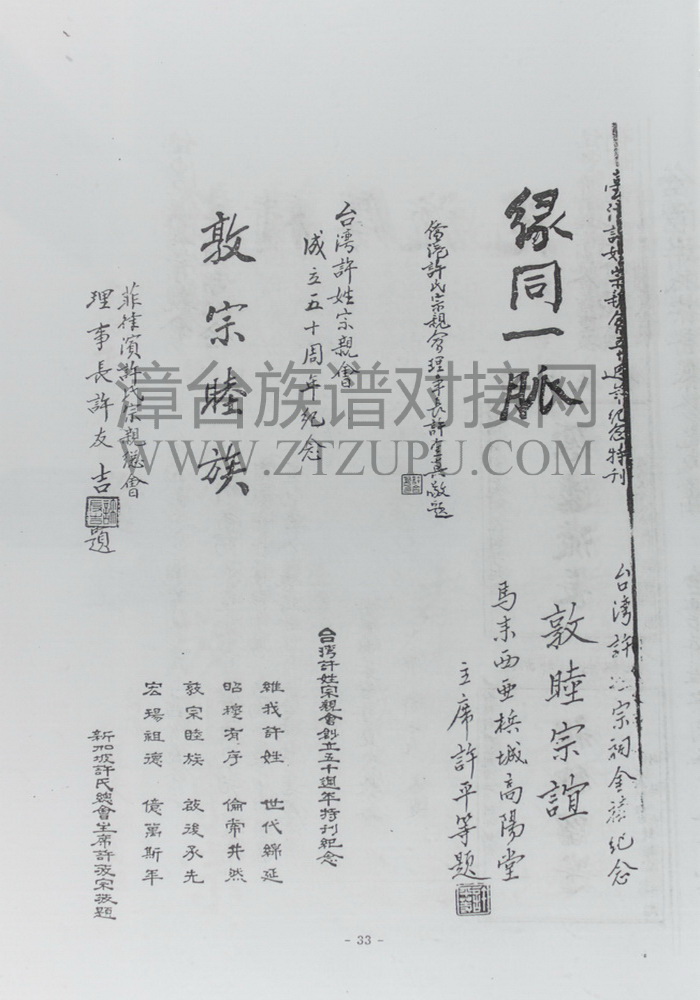 臺灣許姓宗親會五十週年紀念特刊
緣同一脈
香港許氏宗親會理事長許金英敬題
台灣許姓宗親會
成立五十周年紀念
敦宗睦族
菲律濱許氏宗親總會
理事長許友吉題
台灣許氏宗祠金禧紀念
敦睦宗誼
馬來西亜檳城高陽堂
主席許平等題
台灣許姓宗親會創立五十週年特刊紀念
維我許姓 世代綿延
昭穆有序 倫常井然
敦宗睦族 啟後承先
宏揚祖德 億萬斯年
新加坡許氏總會主席許 宗 題
漳台族谱对接网
WWW.ZTZUPU.COM
- 33 -